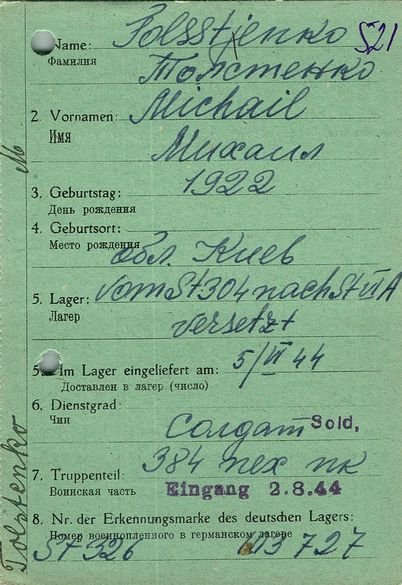 Name: Tolsstjenko 521
Фамилия Толстенко
2. Vornamen: Michail
Имя Михаил
3. Geburtstag: 1922
День рождения
4. Geburtsort:
Место рождения обл. Киев
5. Lager: vom St 304 nach St VI A
Лагер versetzt
5a. Im Lager eingeliefert am: 5/VI 44
Доставлен в лагер (число)
6. Dienstgrad:
Чин Солдат Sold,
7. Truppenteil: 384 пех пк
Воинская часть Eingang 2.8.44
8. Nr. der Erkennungsmarke des deutschen Lagers:
Номер военнопленного в германском лагере
St 326 03727
Tolstenko M